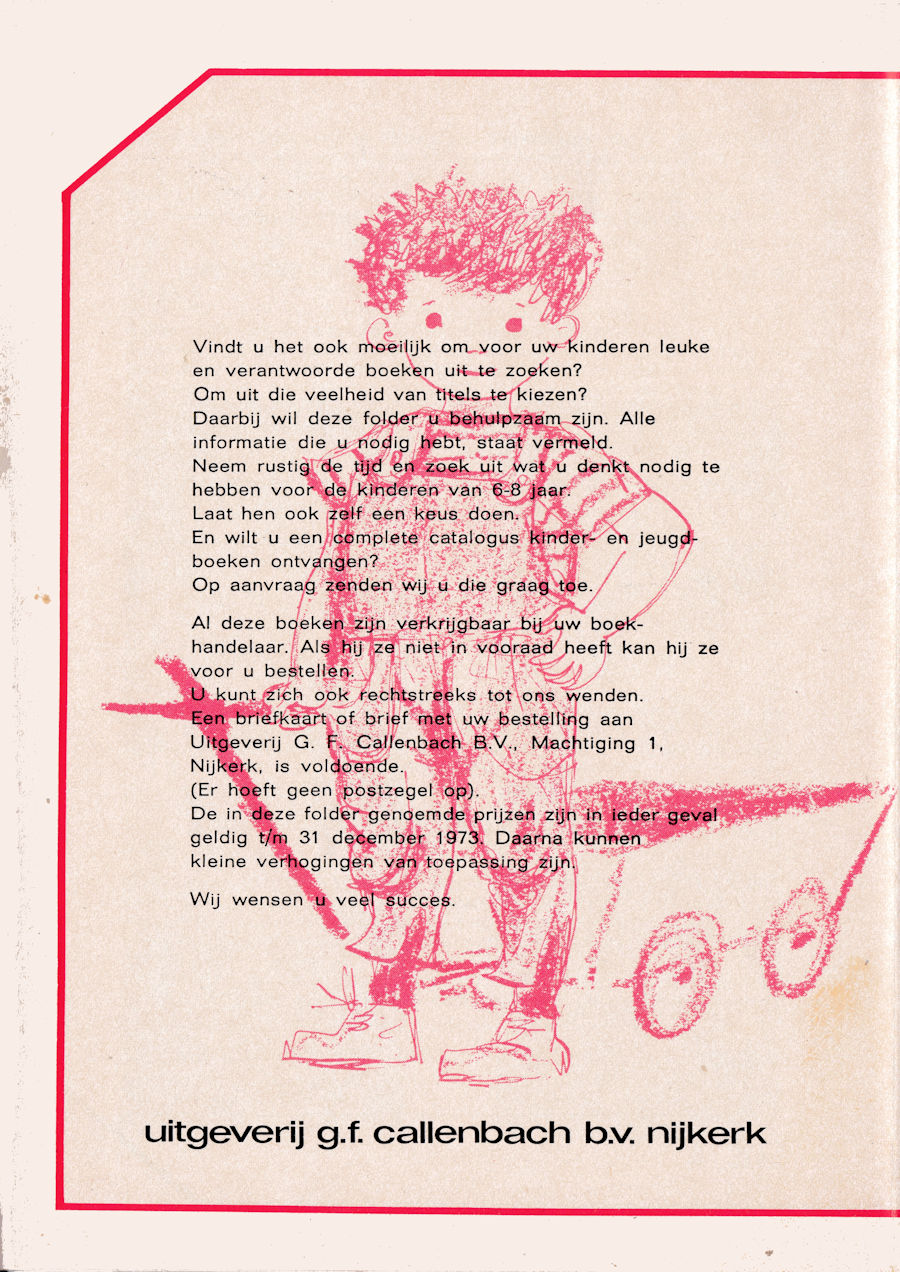 Vindt u het ook moeilijk om voor uw kinderen leuke
en verantwoorde boeken uit te zoeken?
Om uit die veelheid van titels te kiezen?
Daarbij wil deze folder u behulpzaam zijn. Alle
informatie die u nodig hebt, staat vermeld.
Neem rustig de tijd en zoek uit wat u denkt nodig te
hebben voor de kinderen van 6-8 jaar.
Laat hen ook zelf een keus doen.
En wilt u een complete catalogus kinder- en jeugd-
boeken ontvangen?
Op aanvraag zenden wij u die graag toe.
Al deze boeken zijn verkrijgbaar bij uw boek-
handelaar. Als hij ze niet in vooraad heeft kan hij ze
voor u bestellen.
U kunt zich ook rechtstreeks tot ons wenden.
Een briefkaart of brief met uw bestelling aan
Uitgeverij G. F. Callenbach B.V., Machtiging 1,
Nijkerk, is voldoende.
(Er hoeft geen postzegel op).
De in deze folder genoemde prijzen zijn in ieder geval
geldig t/m 31 december 1973. Daarna kunnen
kleine verhogingen van toepassing zijn.
Wij wensen u veel succes.
uitgeverij g.f. callenbach b.v. nijkerk